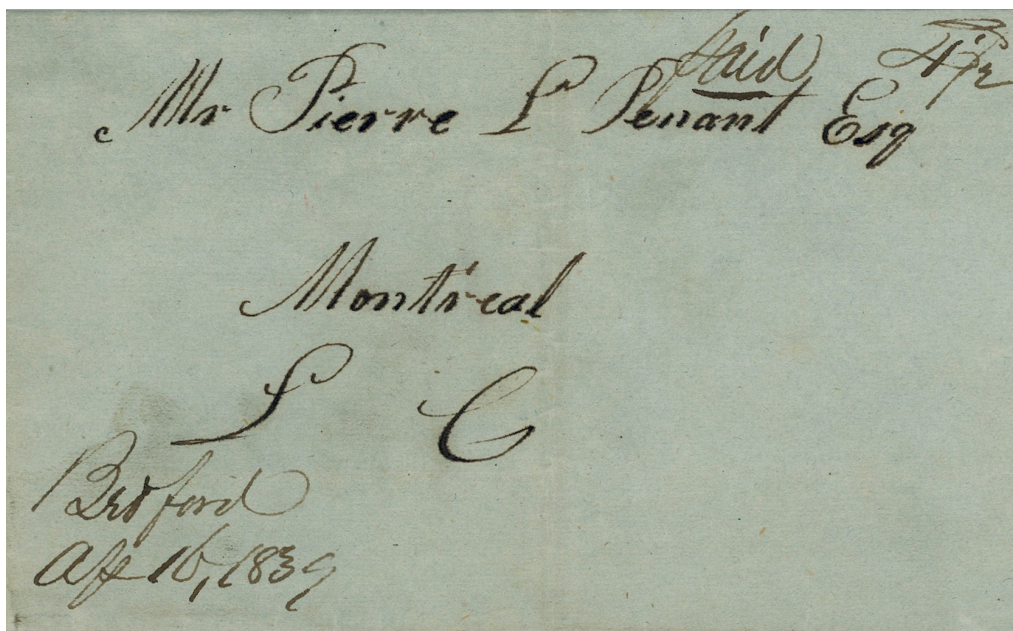 Paid 4½
Mr Pierre L Penant Esq
Montreal
L C
Bedford
Ap 16, 1839